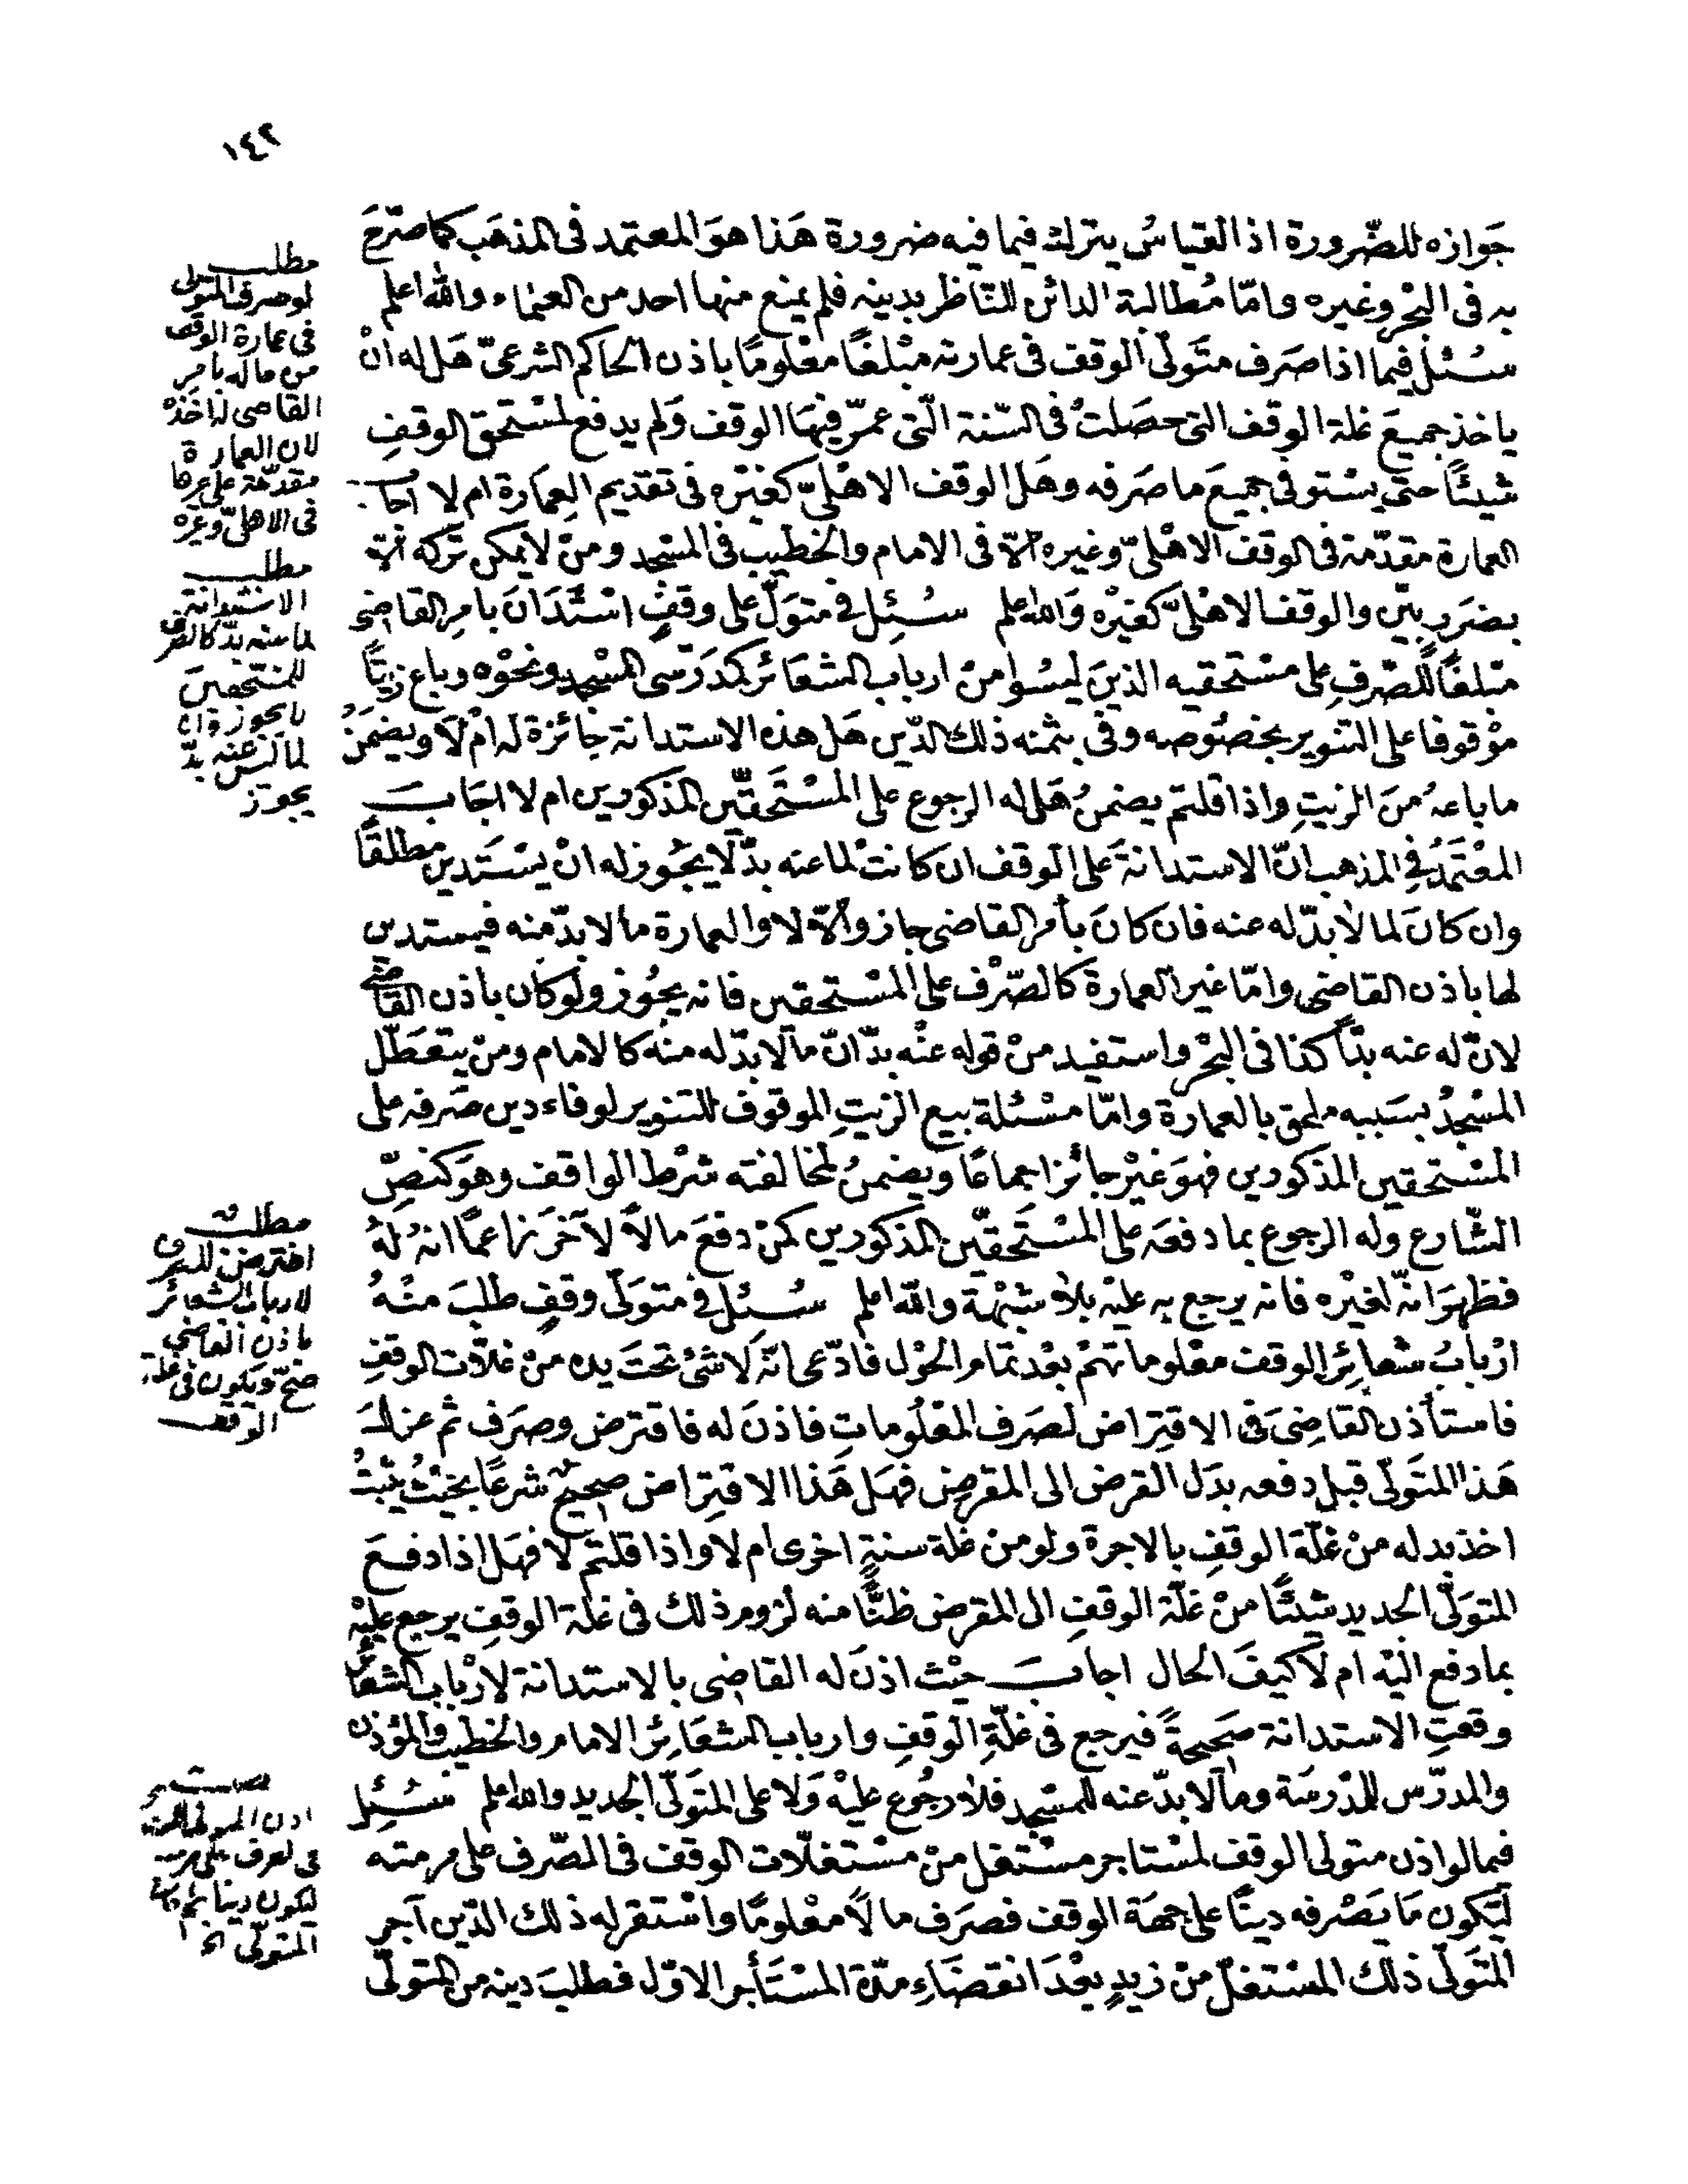 ١٤٢
جَوازه للضّرورة اذا القياسُ يترك فيما فيه ضرورة هَذا هوَ المعتمد فى المذهَب كما صرّحَ
به فى البحْر وغيره وامّا مُطالبة الدائن للنّاظر بدينه فلم يمنع منها احد من العلماء والله اعلم
سُئلَ فيما اذا صَرف متَولّى الوقف فى عمارته مبْلغًا معْلومًا باذن الحاكم الشرعىّ هَل له انْ
ياخذ جميعَ غلة الوقف التى حصَلتْ فى السّنة الّتى عمّر فيهَا الوقف وَلم يدفع لمسْتحق الوقفِ
شيئًا حتى يسْتوفى جميعَ ما صَرفه وهَل الوقف الاهْلىّ كغيْره فى تقديم العِمَارة ام لا اجاب
العمارة مقدّمة فى الوقف الاهْلىّ وغيره الّا فى الامام والخطيب فى المسْجد ومنْ لا يمكن تركه الّا
بضرَرٍ بيّن والوقف الاهْلىّ كغيْره وَالله اعلم سُئِل فى متوَلّ على وقفٍ اسْتَدَانَ بامرِ القاضى
مَبْلغًا للصّرفِ على مسْتحقيه الذينَ ليسُوا منْ ارباب الشعَائر كمدَرّسى المسْجد ونحْوه وباع زيتًا
مَوْقوفا على التنوير بخصُوصه وفى بثمنه ذلك الدّين هَل هذه الاستدانة جائزة له امْ لا ويضمنُ
ما باعهُ منَ الزيتِ واذا قلتم يضمنُ هَل له الرجوع على المسْتَحقّين المذكورين ام لا اجَابَ
المعْتَمَدُ فى المذهب انّ الاستدانةَ على الوقف ان كانتْ لما عنه بدّ لا يجُوز له انْ يسْتَدين مطلقًا
وان كانَ لما لا بدّ له عنه فان كانَ بأمر القاضى جاز والّا لا والعمارة ما لا بدّ منه فيستدين
لها باذن القاضى وامّا غير العمارة كالصّرْف على المسْتحقين فانه يجُوز ولو كان باذن القاضى
لانّ له عنه بدّاً كذا فى البحْر واستفيد منْ قوله عنْه بدّ انّ ما لا بدّ له منْه كالامام ومنْ يتعَطّل
المسْجدُ بسَببه ملحق بالعمارة وامّا مسْئلة بيع الزيتِ الموقوف للتنوير لوفاء دين صَرفه على
المسْتحقين المذكورين فهوَ غيْر جائز اجماعًا ويضمنُ لمخالفته شرْط الواقف وهوَ كنصِّ
الشّارع وله الرجوع بما دفعَه على المسْتَحقّين المذكورين كمنْ دفعَ مالاً لآخَر زاعمًا انهُ لهُ
فظهرَ انّه لغيْره فانه يرجع به عليْه بلا شبْهة والله اعلم سُئل فى متوَلّى وقفٍ طلبَ منْهُ
ارْبابُ شعائِر الوقف معْلوماتهمْ بعْد تمام الحوْل فادّعى انّه لا شئ تحتَ يده منْ غلّات الوقفِ
فاستأذن القاضِىَ فى الاقتِراض لصَرف المعْلُوماتِ فاذنَ له فاقترض وصرَف ثم عزلَ
هَذا المتَولّى قبل دفعه بدَل القرض الى المقرض فهَل هَذا الاقتِراض صحيح شرعًا بحيْثُ يثبْتُ
اخذ بدله منْ غلّة الوقفِ بالاجرة ولو من غلة سنةٍ اخرى ام لا واذا قلتم لا فهَل اذا دفعَ
المتوَلّى الجديد شيئًا منْ غلّة الوقفِ الى المقرض ظنًّا منه لزوم ذلك فى غلة الوقفِ يرجع عليْه
بما دفع اليْه ام لا كيفَ الحال اجابَ حيْث اذنَ له القاضى بالاستدانة لارْباب الشعائر
وقعتِ الاستدانة صَحيحةً فيرجع فى غلّةِ الوقفِ وارباب الشعَائر الامام والخطيب والمؤذن
والمدرّس للمدْرسَة وما لا بدّ عنه للمسْجد فلا رجُوع عليْه وَلا على المتوَلّى الجديد والله اعلم سُئِل
فيما لو اذن متولى الوقف لمسْتاجر مسْتغل منْ مسْتغلّات الوقف فى الصّرف على مرمته
ليَكون مَا يَصْرفه دينًا على جهَة الوقف فصرَف مالاً معْلومًا واسْتقر له ذلك الدّين آجر
المتَولّى ذلك المسْتغلّ منْ زيدٍ بعْدَ انقضَاءِ مدّة المسْتَأجر الاوّل فطلبَ دينه من المتولّى
مطلب
لو صرف المتولى
فى عمارة الوقف
من ماله بامر
القاضى له اخذْ
لان العمارة
مقدّمة على غيرها
فى الاهلىّ وغيره
مطلب
الاستدانة
لما منه بدّ كالصرف
للمستحقين
لا يجوز وان
لما ليس عنه بدّ
يجوز
مطلب
اقترض للصرف
لارباب الشعائر
باذن القاضى
صحّ ويكون فى غلة
الوقف
اذن المتولى
فى الصرف على مرمته
ليكون دينا
المتولّى الخ